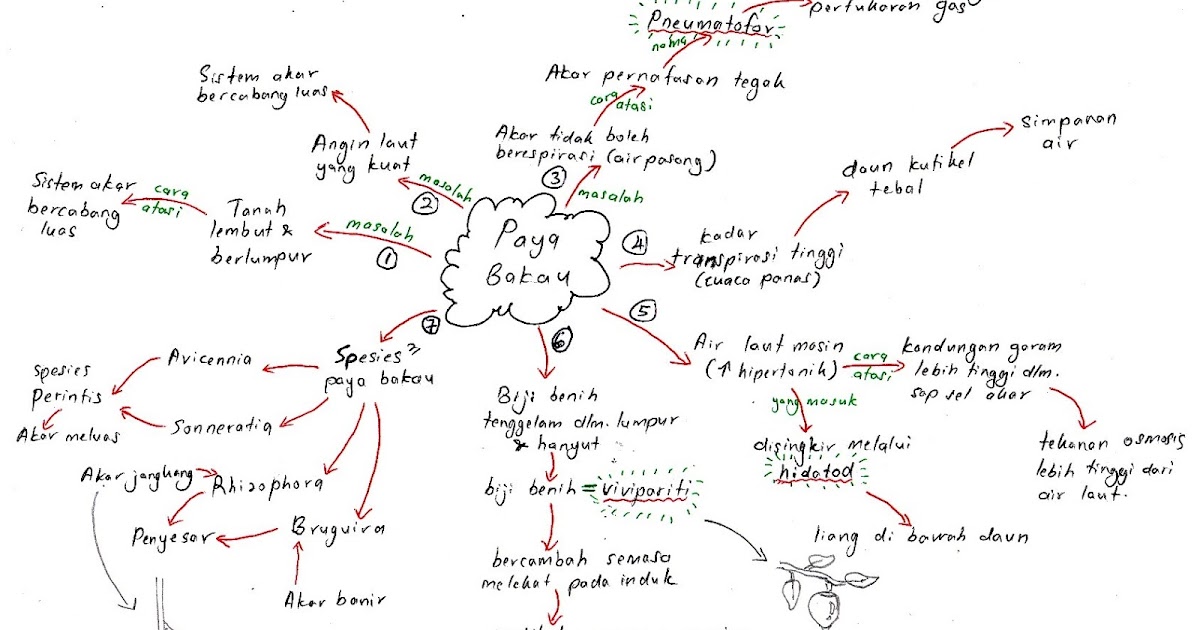 Pneumatofor
pertukaran gas
nama
Akar pernafasan tegak
cara
atasi
Akar tidak boleh
berespirasi (air pasang)
③
masalah
Sistem akar
bercabang luas
Angin laut
yang kuat
masalah
②
Sistem akar
bercabang
luas
cara
atasi
Tanah
lembut &
berlumpur
masalah
①
Paya
Bakau
④
kadar
transpirasi tinggi
(cuaca panas)
daun kutikel
tebal
simpanan
air
⑤
Air laut masin
(↑ hipertonik)
cara
atasi
kandungan garam
lebih tinggi dlm.
sap sel akar
tekanan osmosis
lebih tinggi dari
air laut.
yang masuk
disingkir melalui
hidatod
liang di bawah daun
⑥
Biji benih
tenggelam dlm. lumpur
& hanyut
biji benih = vivipariti
bercambah semasa
melekat pada induk
⑦
Spesies²
paya bakau
Avicennia
Sonneratia
spesies
Perintis
Akar meluas
Akar jangkang
Rhizophora
Bruguira
Penyesar
Akar banir